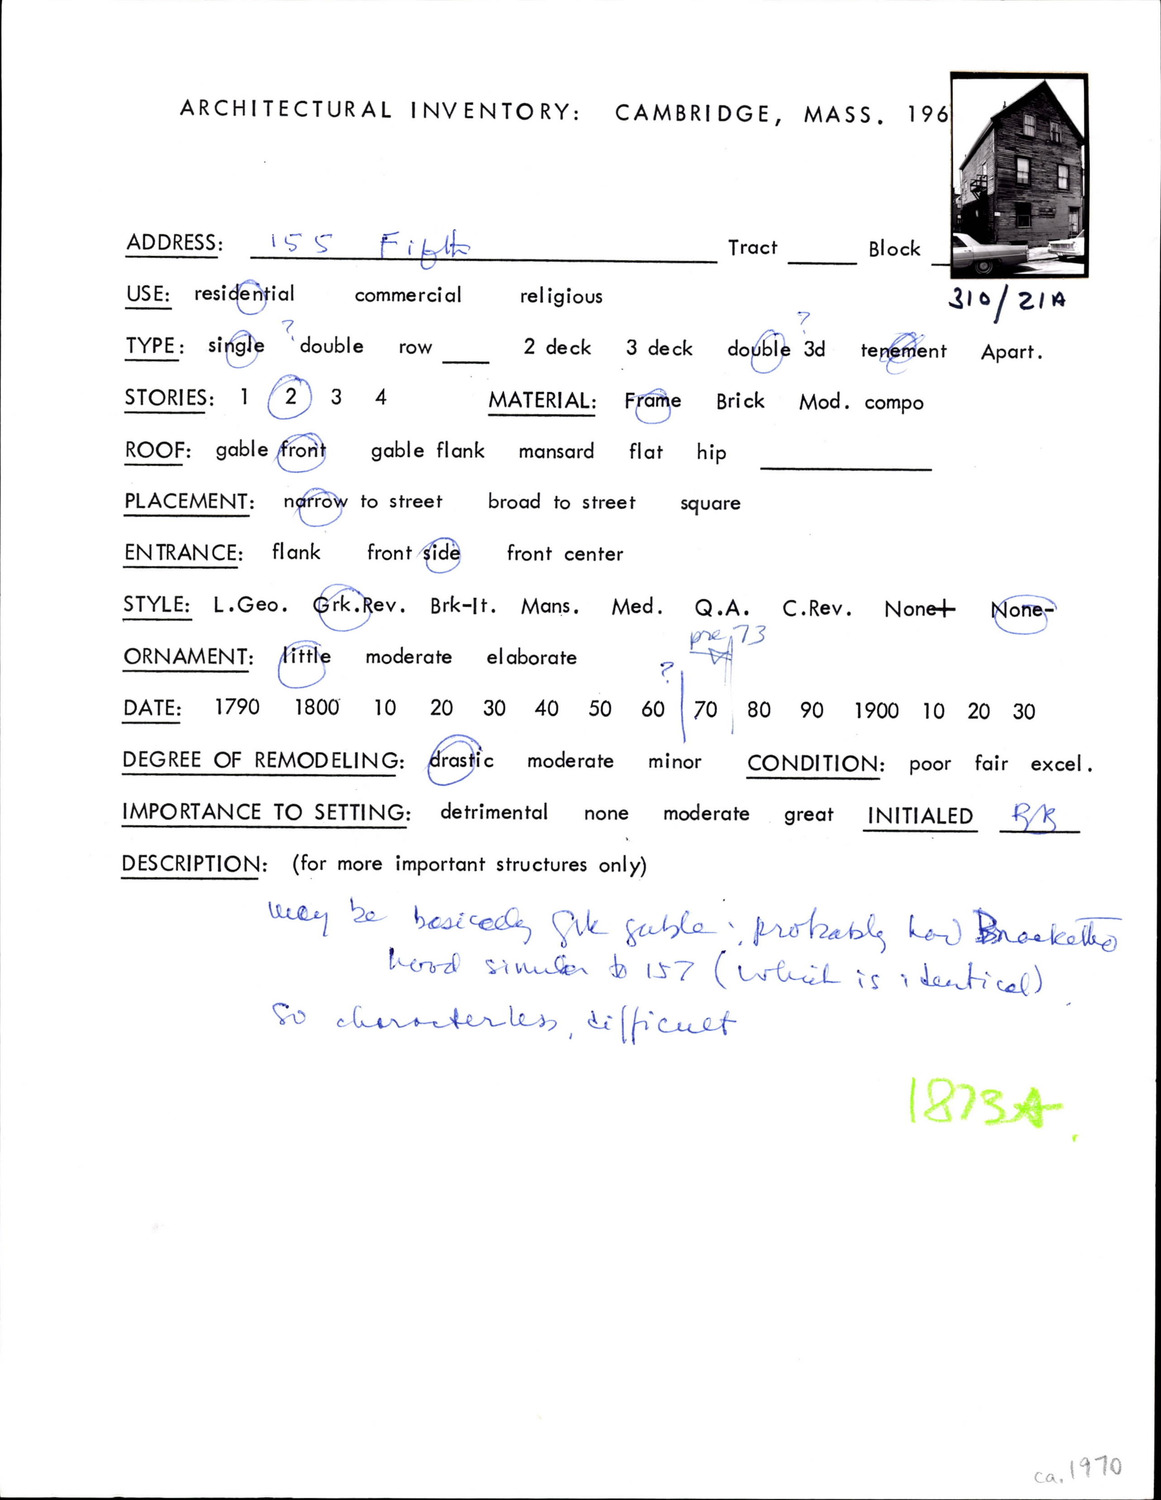 ARCHITECTURAL INVENTORY: CAMBRIDGE, MASS. 196
ADDRESS: 155 Fifth Tract Block
310/21A
USE: residential commercial religious
? ?
TYPE: single double row 2 deck 3 deck double 3d tenement Apart.
STORIES: 1 2 3 4 MATERIAL: Frame Brick Mod. compo
ROOF: gable front gable flank mansard flat hip
PLACEMENT: narrow to street broad to street square
ENTRANCE: flank front side front center
STYLE: L.Geo. Grk.Rev. Brk-It. Mans. Med. Q.A. C.Rev. None+ None-
pre 73
ORNAMENT: little moderate elaborate
?
DATE: 1790 1800 10 20 30 40 50 60 70 80 90 1900 10 20 30
DEGREE OF REMODELING: drastic moderate minor CONDITION: poor fair excel.
IMPORTANCE TO SETTING: detrimental none moderate great INITIALED
DESCRIPTION: (for more important structures only)
may be basically Grk gable; probably had Bracketed
hood similar to 157 (which is identical)
So characterless, difficult
1873A
ca. 1970